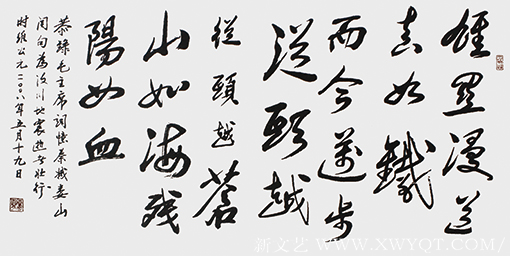 雄関漫道
真如鐵
而今邁步
從頭越
從頭越蒼
山如海残
陽如血
恭録毛主席詞憶秦娥娄山
関句為汶川地震逝者壮行
时維公元二〇〇八年五月十九日
新文艺/WWW.XWYQT.COM